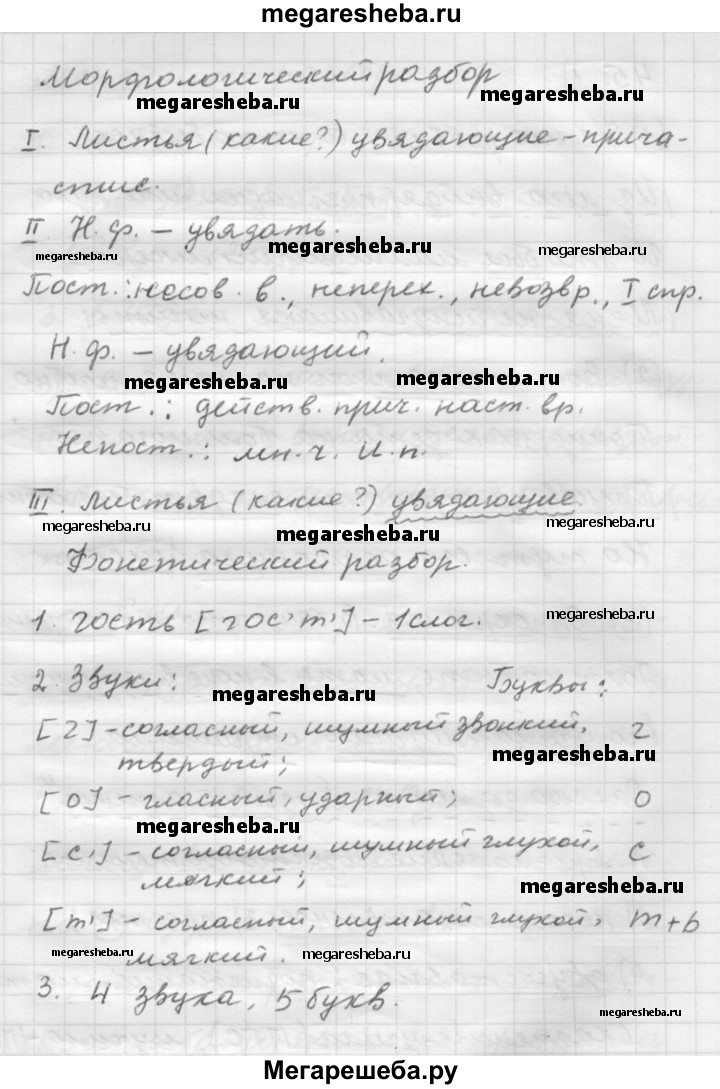 megaresheba.ru
Морфологический разбор
megaresheba.ru megaresheba.ru
I. Листья (какие?) увядающие – прича-
стие.
II. Н. ф. – увядать.
megaresheba.ru megaresheba.ru megaresheba.ru
Пост.: несов. в., неперех., невозвр., I спр.
Н. ф. – увядающий.
megaresheba.ru megaresheba.ru
Пост.: действ. прич. наст. вр.
Непост.: мн. ч. И. п.
III. Листья (какие?) увядающие.
megaresheba.ru megaresheba.ru megaresheba.ru
Фонетический разбор.
1. Гость [гос'т'] – 1 слог.
megaresheba.ru
2. Звуки: Буквы:
megaresheba.ru
[г] – согласный, шумный звонкий, г
твердый;
megaresheba.ru
[о] – гласный, ударный; о
megaresheba.ru
[с'] – согласный, шумный глухой, с
мягкий;
megaresheba.ru
[т'] – согласный, шумный глухой, т+ь
мягкий.
megaresheba.ru megaresheba.ru
3. 4 звука, 5 букв.
megaresheba.ru megaresheba.ru
Мегарешеба.ру